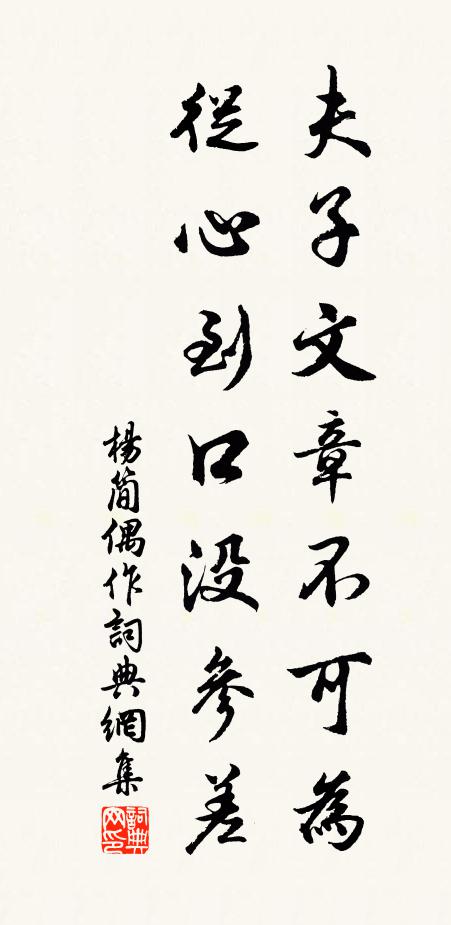 夫子文章不可為
從心到口没參差
楊簡偶作詞典網集
詞典网印